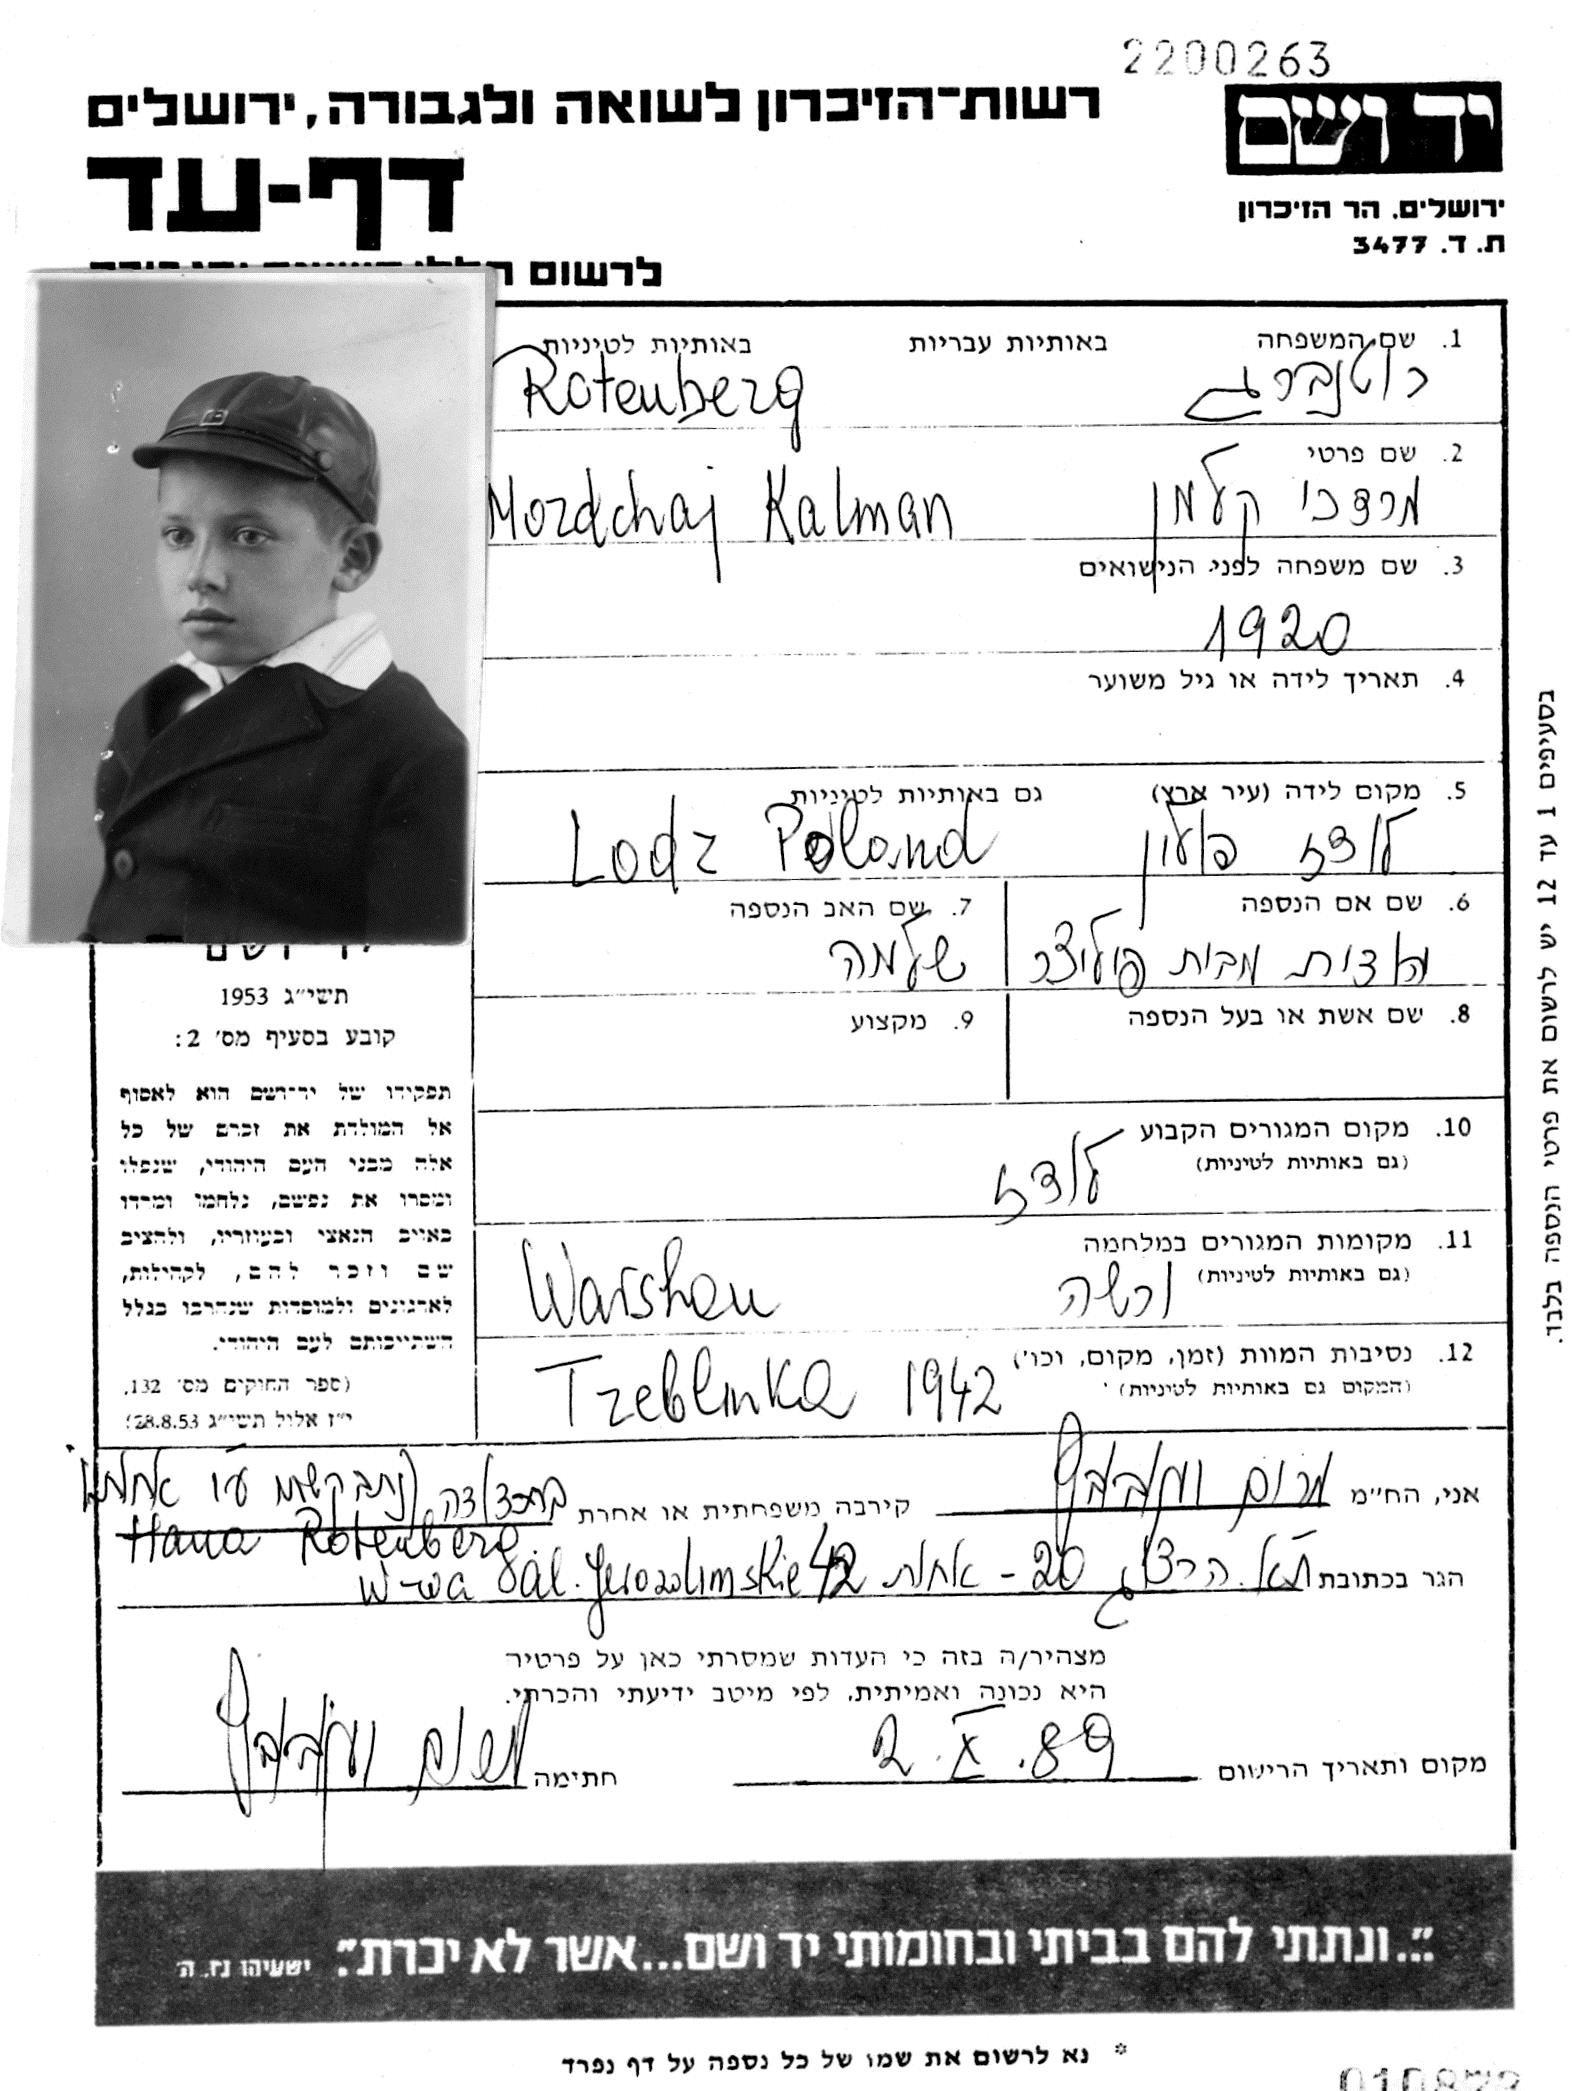 2200263
יד ושם
רשות־הזיכרון לשואה ולגבורה, ירושלים
דף-עד
ירושלים. הר הזיכרון
ת. ד. 3477
לרשום
1. שם המשפחה באותיות עבריות באותיות לטיניות
רוטנברג Rotenberg
2. שם פרטי
מרדכי קלמן Mordchaj Kalman
3. שם משפחה לפני הנישואים
1920
4. תאריך לידה או גיל משוער
5. מקום לידה (עיר ארץ) גם באותיות לטיניות
לודז פולין Lodz Poland
6. שם אם הנספה 7. שם האב הנספה
מבית שלמה
8. שם אשת או בעל הנספה 9. מקצוע
10. מקום המגורים הקבוע
(גם באותיות לטיניות)
לודז
11. מקומות המגורים במלחמה
(גם באותיות לטיניות)
ורשה Warshau
12. נסיבות המוות (זמן, מקום, וכו')
(המקום גם באותיות לטיניות)
Treblinka 1942
ושם
תשי״ג 1953
קובע בסעיף מס׳ 2:
תפקידו של יד־ושם הוא לאסוף
אל המולדת את זכרם של כל
אלה מבני העם היהודי, שנפלו
ומסרו את נפשם, נלחמו ומרדו
באויב הנאצי ובעוזריו, ולהציב
שם וזכר להם, לקהילות,
לארגונים ולמוסדות שנחרבו בגלל
השתייכותם לעם היהודי.
(ספר החוקים מס׳ 132,
י״ז אלול תשי״ג 28.8.53)
בסעיפים 1 עד 12 יש לרשום את פרטי הנספה בלבד.
אני, הח״מ מרים קירבה משפחתית או אחרת
Hana Rotenberg
הגר בכתובת 20 - 42 W-wa al. Jerozolimskie
מצהיר/ה בזה כי העדות שמסרתי כאן על פרטיה
היא נכונה ואמיתית, לפי מיטב ידיעתי והכרתי.
מקום ותאריך הרישום 2.X.89 חתימה
״...ונתתי להם בביתי ובחומותי יד ושם...אשר לא יכרת״. ישעיהו נז. ה׳
* נא לרשום את שמו של כל נספה על דף נפרד